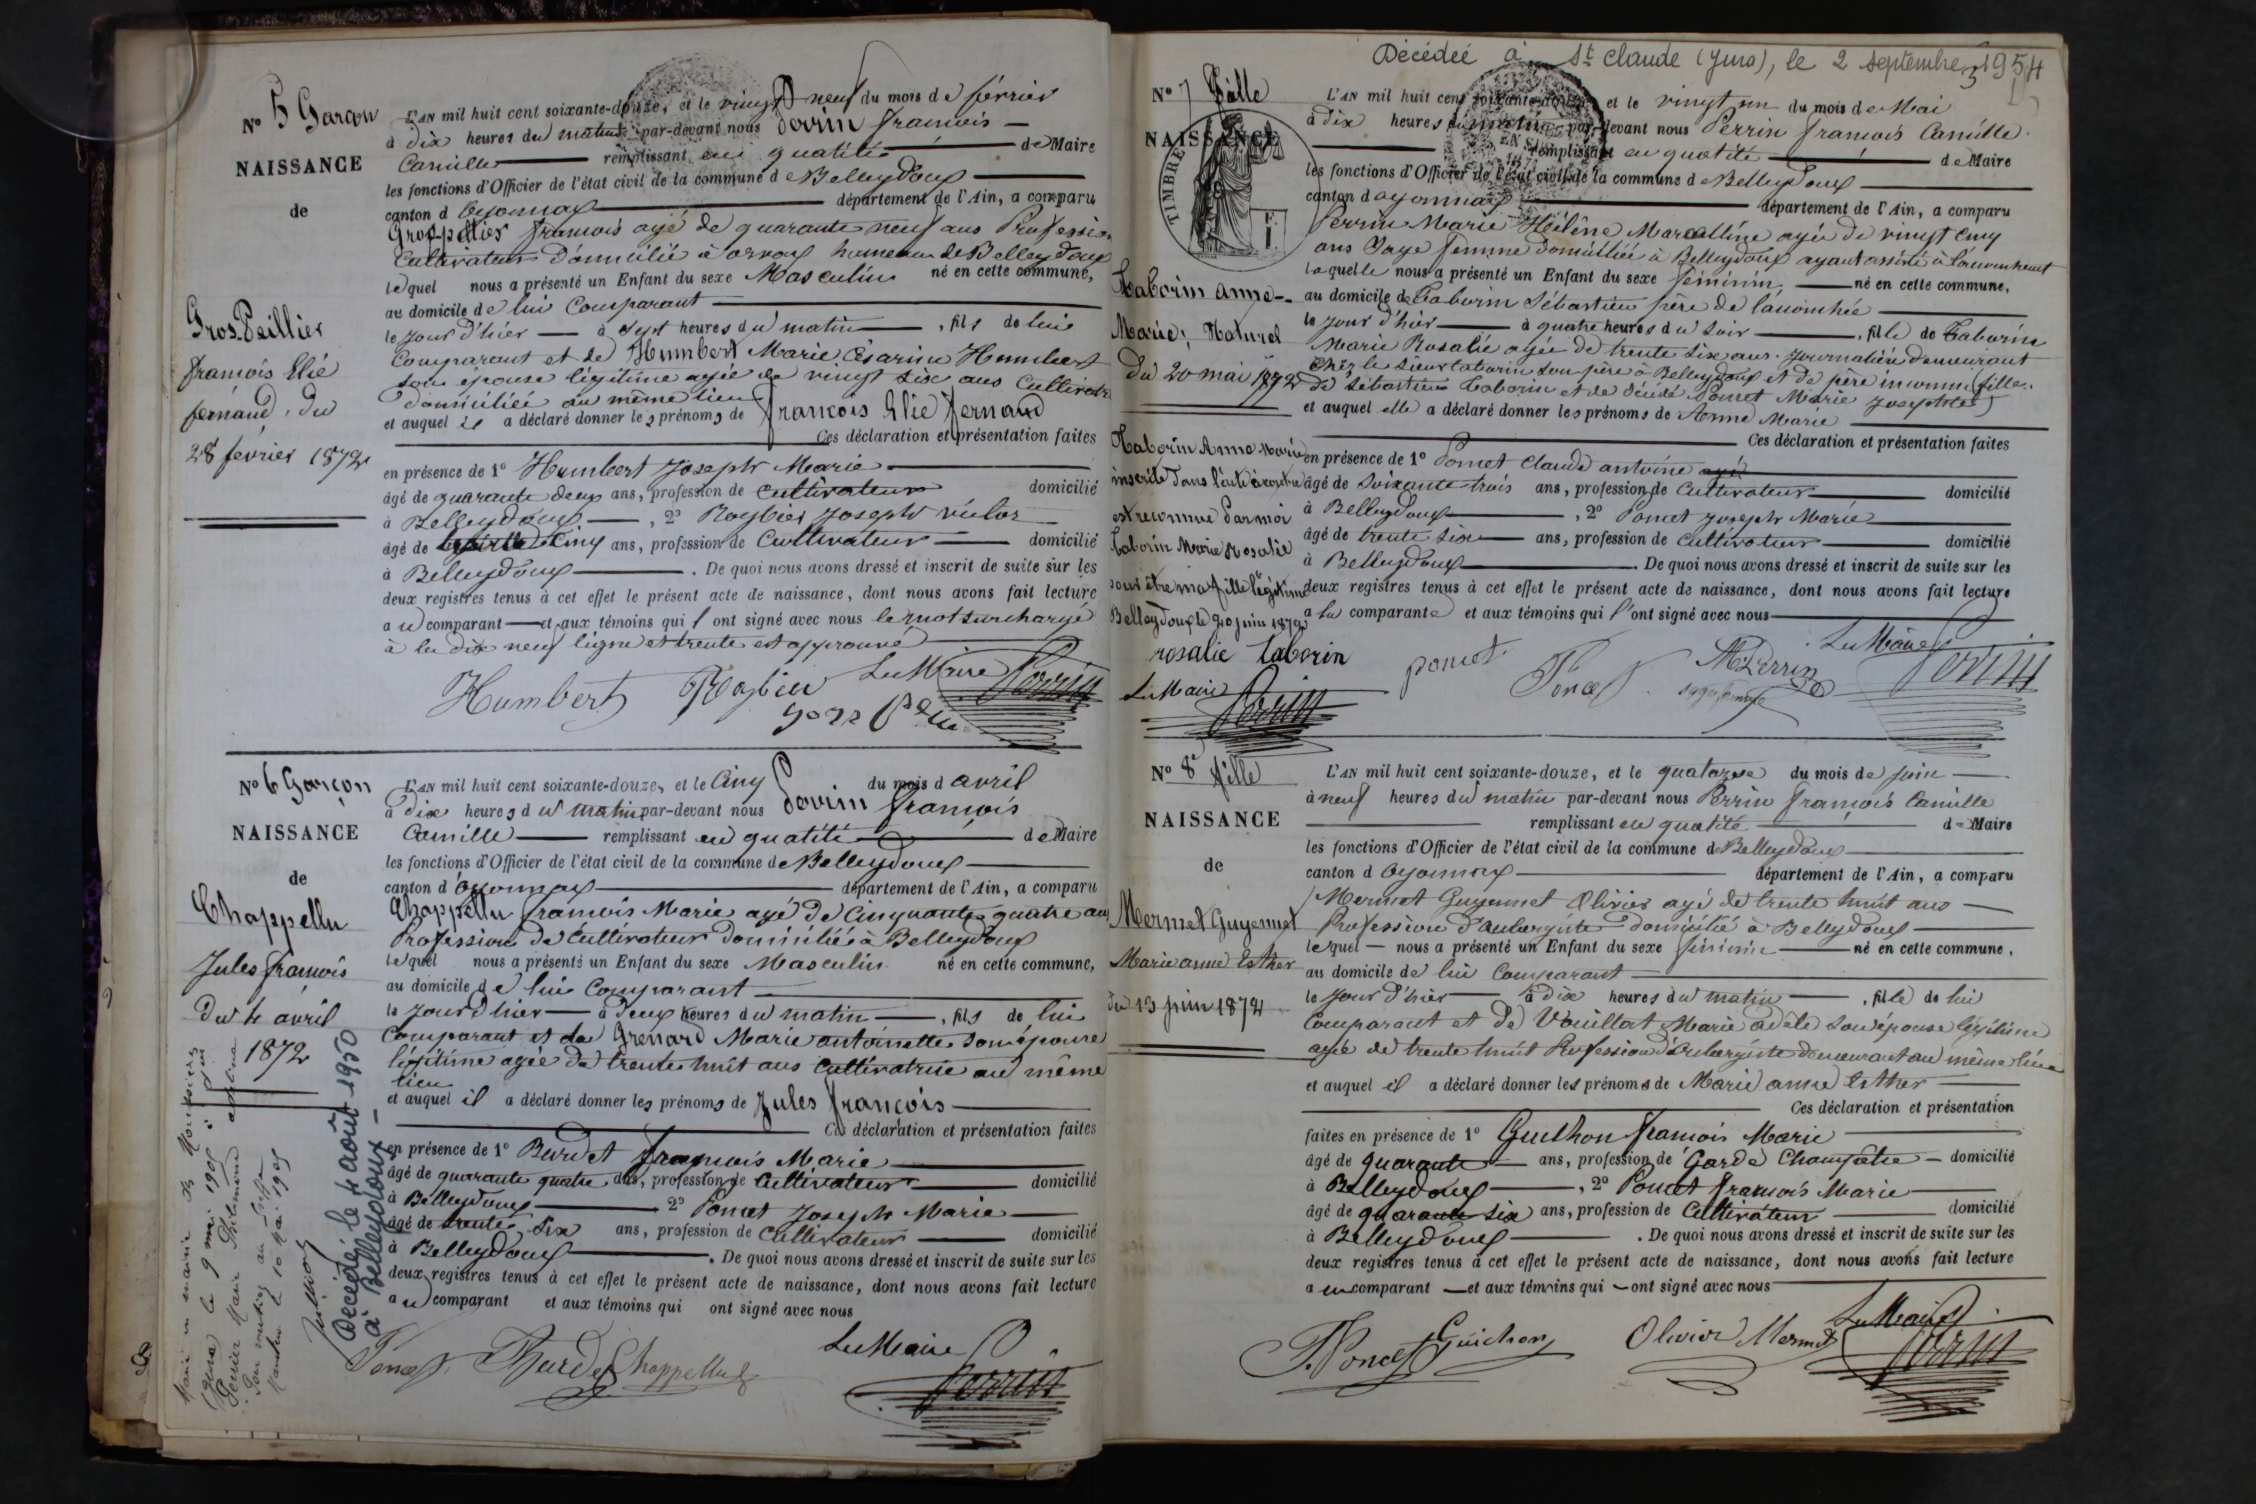 N° 5 Garçon
NAISSANCE
de
Gros-Peillier
françois Elié
fernand, du
28 février 1872
L'AN mil huit cent soixante-douze, et le vingt neuf du mois de février
à dix heures du matin par-devant nous Perrin françois
Camille remplissant en qualité de Maire
les fonctions d'Officier de l'état civil de la commune de Belleydoux
canton d'Oyonnax département de l'Ain, a comparu
Gros-peillier françois agé de quarante neuf ans Profession
Cultivateur domicilié à orvoz hameau de Belleydoux
lequel nous a présenté un Enfant du sexe Masculin né en cette commune,
au domicile de lui Comparant
le jour d'hier à sept heures du matin, fils de lui
Comparant et de Humbert Marie Césarine Humbert
son épouse légitime agée de vingt six ans Cultivatr
domiciliée au même lieu
et auquel il a déclaré donner les prénoms de françois Elie fernand
Ces déclaration et présentation faites
en présence de 1° Humbert Joseph Marie
âgé de quarante deux ans, profession de Cultivateur domicilié
à Belleydoux, 2° Roybier Joseph victor
âgé de trente Cinq ans, profession de Cultivateur domicilié
à Belleydoux. De quoi nous avons dressé et inscrit de suite sur les
deux registres tenus à cet effet le présent acte de naissance, dont nous avons fait lecture
au comparant et aux témoins qui l'ont signé avec nous le mot surchargé
à la dix neuf ligne et trente est approuvé
Humbert Roybier Le Maire Perrin
N° 6 Garçon
NAISSANCE
de
Chappellu
Jules françois
du 4 avril
1872
L'AN mil huit cent soixante-douze, et le Cinq du mois d'avril
à dix heures du matin par-devant nous Perrin françois
Camille remplissant en qualité de Maire
les fonctions d'Officier de l'état civil de la commune de Belleydoux
canton d'Oyonnax département de l'Ain, a comparu
Chappellu françois Marie agé de Cinquante quatre ans
Profession de Cultivateur domicilié à Belleydoux
lequel nous a présenté un Enfant du sexe Masculin né en cette commune,
au domicile de lui Comparant
le jour d'hier à deux heures du matin, fils de lui
Comparant et de Grenard Marie antoinette son épouse
légitime agée de trente huit ans Cultivatrice au même
lieu
et auquel il a déclaré donner les prénoms de Jules françois
Ces déclaration et présentation faites
en présence de 1° Burdet françois Marie
âgé de quarante quatre ans, profession de Cultivateur domicilié
à Belleydoux 2° Poncet Joseph Marie
âgé de trente six ans, profession de Cultivateur domicilié
à Belleydoux. De quoi nous avons dressé et inscrit de suite sur les
deux registres tenus à cet effet le présent acte de naissance, dont nous avons fait lecture
au comparant et aux témoins qui ont signé avec nous
Le Maire
Poncet Burdet Chappellu Perrin
Marié en mairie de
(Jura) le 9 mai 1905 à
Perrier Marie Philomène
le 10 Mai 1905
Décédé le 4 août 1950
à Belleydoux
Décédée à St Claude (Jura), le 2 septembre 1954
3
N° 7 fille
NAISSANCE
TIMBRE
Taborin anne-
Marie, Naturel
du 20 mai 1872
Taborin Anne Marie
inscrite dans l'acte ci contre
est reconnue par moi
Taborin Marie Rosalie
pour être ma fille légitime
Belleydoux le 9 juin 1872
rosalie taborin
Le Maire
Perrin
L'AN mil huit cent soixante-douze, et le vingt un du mois de Mai
à dix heures du matin par-devant nous Perrin françois Camille
remplissant en qualité de Maire
les fonctions d'Officier de l'état civil de la commune de Belleydoux
canton d'oyonnax département de l'Ain, a comparu
Perrin Marie Hélène Marcelline agée de vingt cinq
ans Sage femme domiciliée à Belleydoux ayant assisté à l'accouchement
laquelle nous a présenté un Enfant du sexe féminin né en cette commune,
au domicile de Taborin Sébastien père de l'accouchée
le jour d'hier à quatre heures du soir, fille de Taborin
Marie Rosalie agée de trente six ans. Journalière demeurant
chez le sieur taborin son père à Belleydoux et de père inconnu (fille
de sébastien Taborin et de décédée Poncet Marie Josephte)
et auquel elle a déclaré donner les prénoms de Anne Marie
Ces déclaration et présentation faites
en présence de 1° Poncet Claude antoine agé
âgé de soixante trois ans, profession de Cultivateur domicilié
à Belleydoux, 2° Poncet Joseph Marie
âgé de trente six ans, profession de Cultivateur domicilié
à Belleydoux. De quoi nous avons dressé et inscrit de suite sur les
deux registres tenus à cet effet le présent acte de naissance, dont nous avons fait lecture
a la comparante et aux témoins qui l'ont signé avec nous
Le Maire
poncet Poncet M Perrin Perrin
sage femme
N° 8 fille
NAISSANCE
de
Mermet Guyennet
Marie anne Esther
du 13 juin 1872
L'AN mil huit cent soixante-douze, et le quatorze du mois de juin
à neuf heures du matin par-devant nous Perrin françois Camille
remplissant en qualité de Maire
les fonctions d'Officier de l'état civil de la commune de Belleydoux
canton d'Oyonnax département de l'Ain, a comparu
Mermet Guyennet Olivier agé de trente huit ans
Profession d'aubergiste domicilié à Belleydoux
lequel nous a présenté un Enfant du sexe féminin né en cette commune,
au domicile de lui Comparant
le jour d'hier à dix heures du matin, fille de lui
Comparant et de Vouillat Marie adèle son épouse légitime
agée de trente huit Profession d'Aubergiste demeurant au même lieu
et auquel il a déclaré donner les prénoms de Marie anne Esther
Ces déclaration et présentation
faites en présence de 1° Guichon françois Marie
âgé de quarante ans, profession de Garde Champêtre domicilié
à Belleydoux, 2° Poncet françois Marie
âgé de quarante six ans, profession de Cultivateur domicilié
à Belleydoux. De quoi nous avons dressé et inscrit de suite sur les
deux registres tenus à cet effet le présent acte de naissance, dont nous avons fait lecture
au comparant et aux témoins qui ont signé avec nous
Le Maire
F. Poncet Guichon Olivier Mermet Perrin